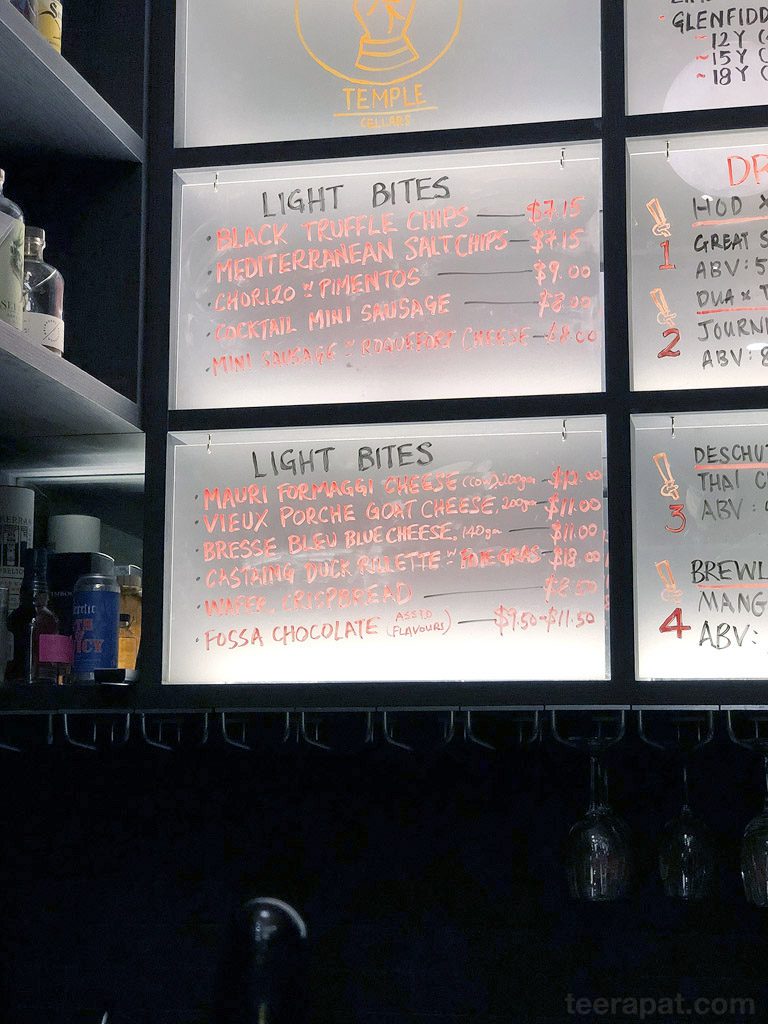 TEMPLE
CELLARS
LIGHT BITES
• BLACK TRUFFLE CHIPS — $7.15
• MEDITERRANEAN SALT CHIPS — $7.15
• CHORIZO w PIMENTOS — $9.00
• COCKTAIL MINI SAUSAGE — $8.00
• MINI SAUSAGE w ROQUEFORT CHEESE — $8.00
LIGHT BITES
• MAURI FORMAGGI CHEESE (COW), 200gm — $12.00
• VIEUX PORCHE GOAT CHEESE, 200gm — $11.00
• BRESSE BLEU BLUE CHEESE, 140gm — $11.00
• CASTAING DUCK RILLETTE w FOIE GRAS — $18.00
• WAFER, CRISPBREAD — $8.50
• FOSSA CHOCOLATE (ASSTD FLAVOURS) — $9.50-$11.50
GLENFIDD
~12Y
~15Y
~18Y
DR
1
HOD X
GREAT S
ABV: 5
2
DUA x T
JOURN
ABV: 8
3
DESCHUT
THAI C
ABV:
4
BREWL
MANG
ABV:
teerapat.com